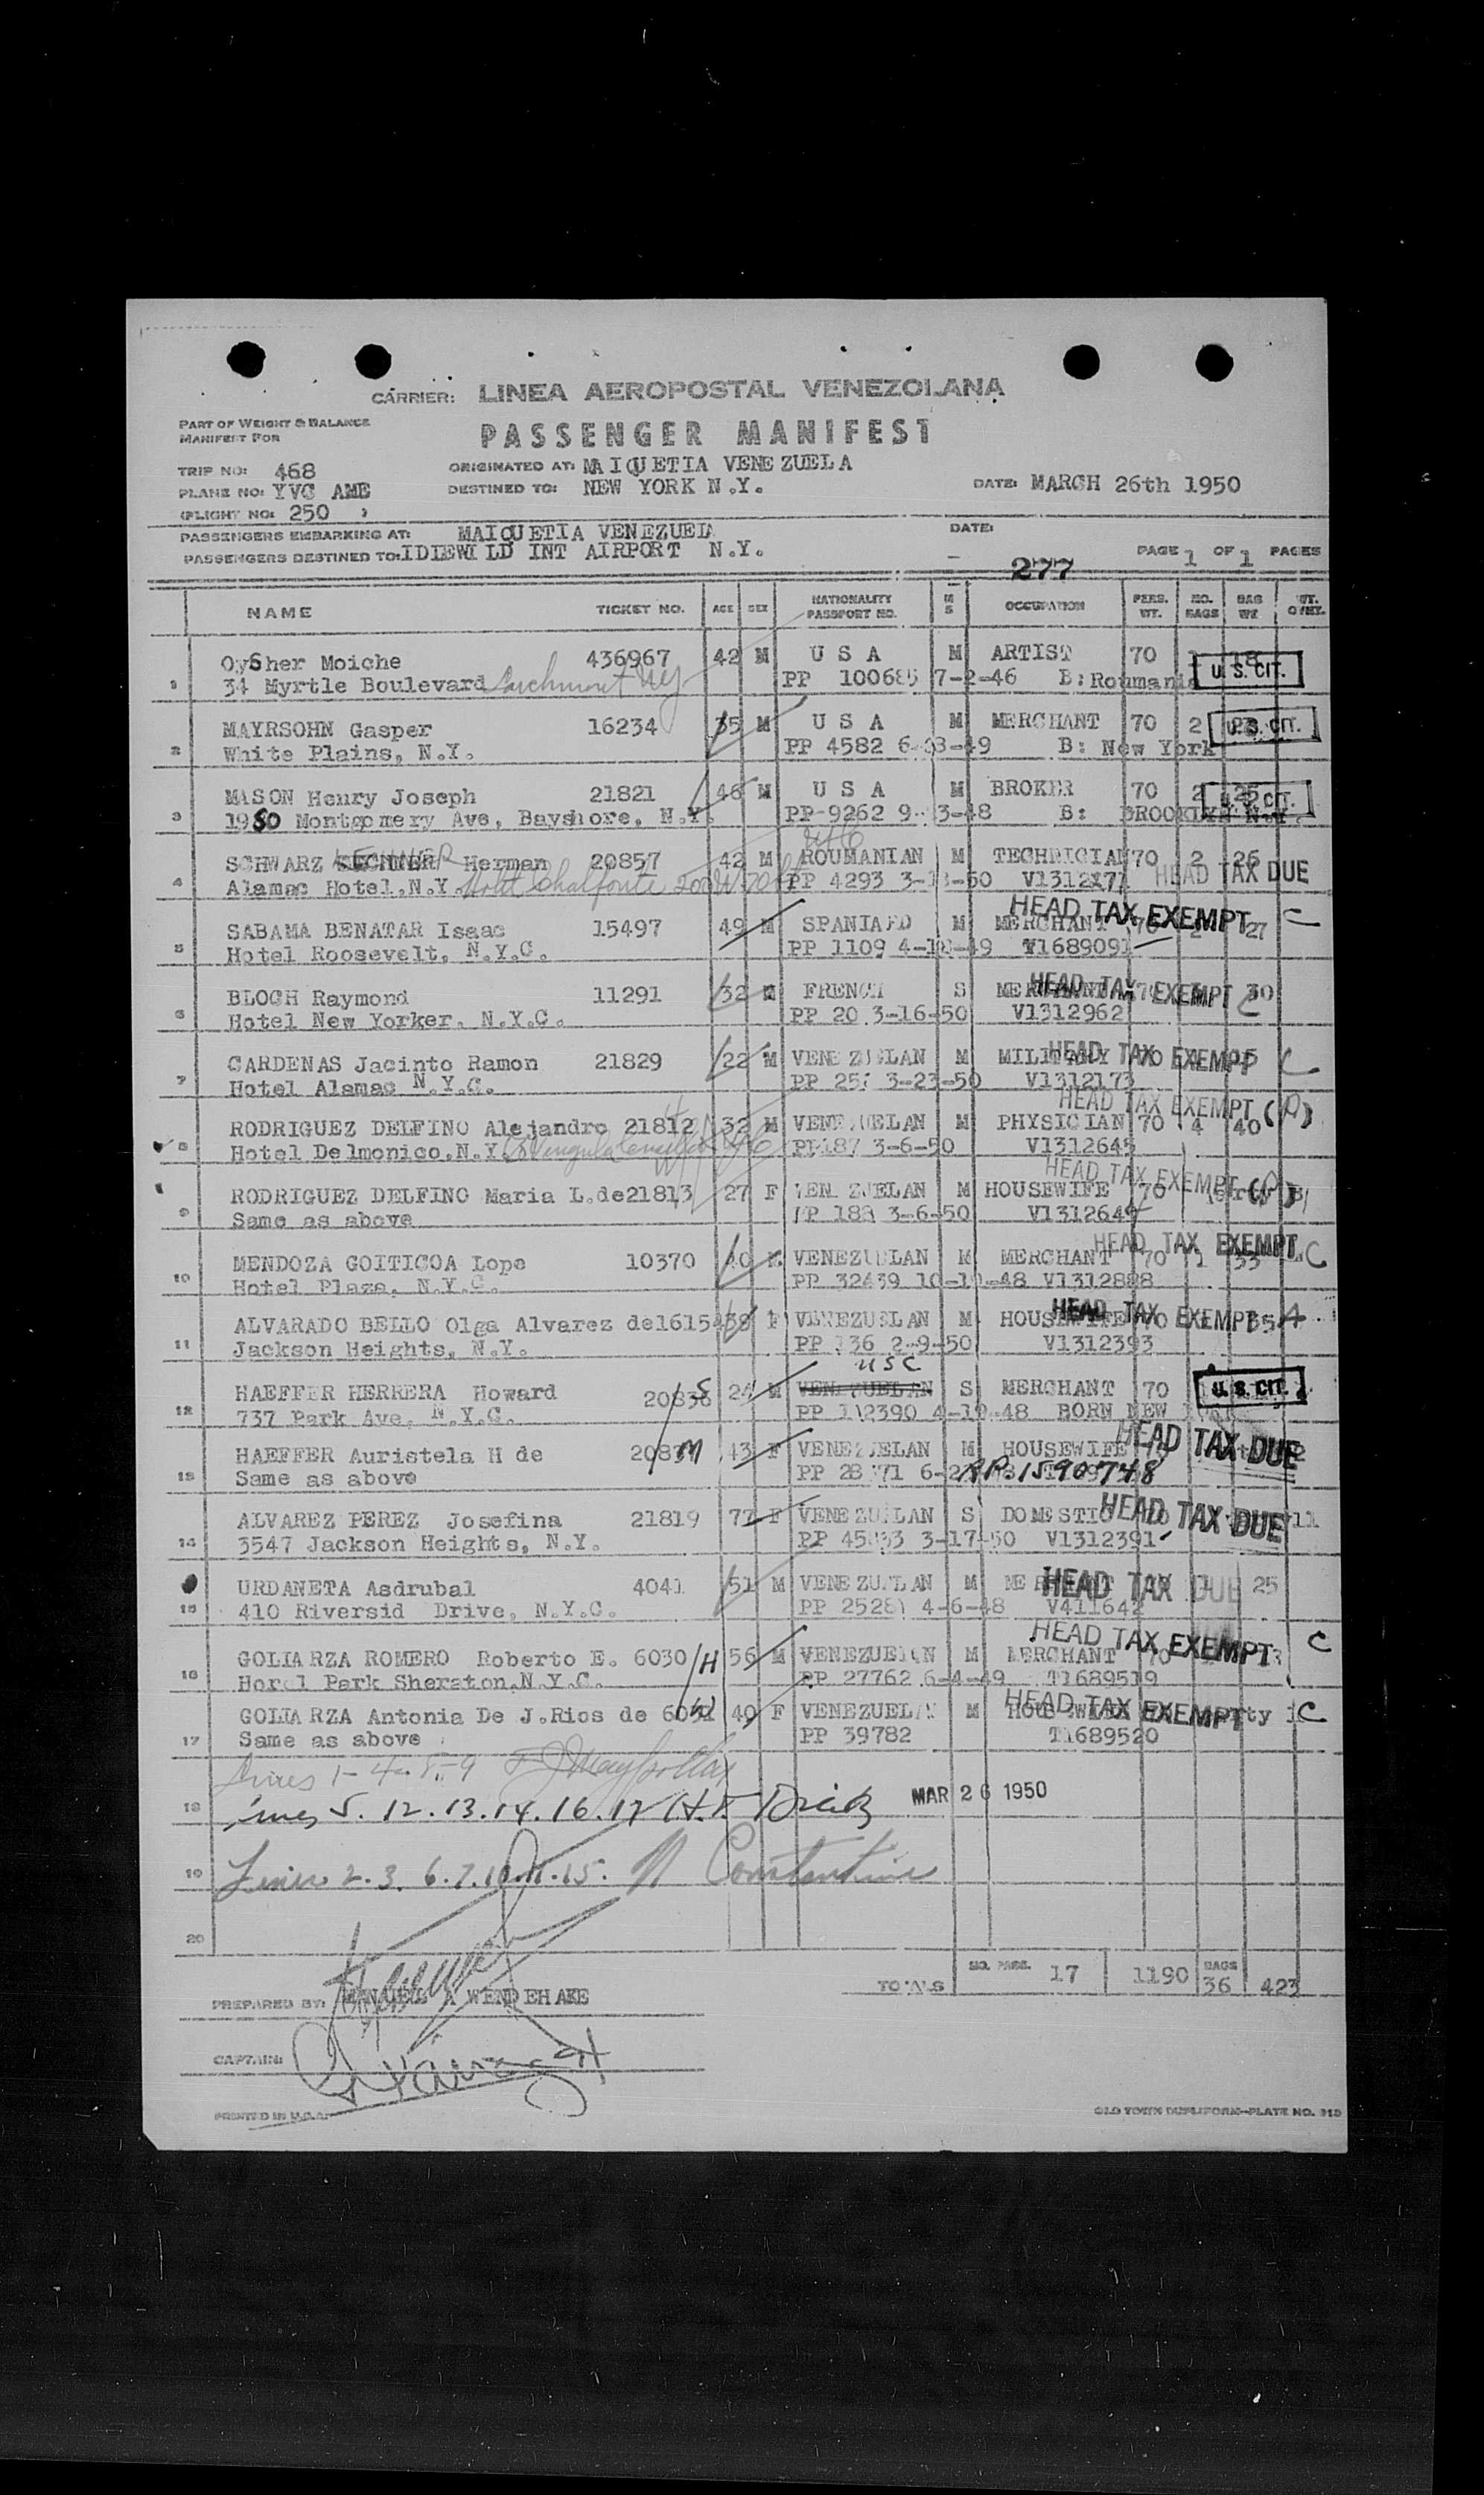 CARRIER: LINEA AEROPOSTAL VENEZOLANA
PART OF WEIGHT & BALANCE
MANIFEST FOR
PASSENGER MANIFEST
TRIP NO: 468 ORIGINATED AT: MAIQUETIA VENEZUELA
PLANE NO: YVC AME DESTINED TO: NEW YORK N.Y. DATE: MARCH 26th 1950
(FLIGHT NO: 250 )
PASSENGERS EMBARKING AT: MAIQUETIA VENEZUELA DATE:
PASSENGERS DESTINED TO: IDIEWILD INT AIRPORT N.Y. PAGE 1 OF 1 PAGES
277
NAME TICKET NO. AGE SEX NATIONALITY PASSPORT NO. M S OCCUPATION PERS. WT. NO. BAGS BAG WT WT. OTHT.
1 OySher Moiche 436967 42 M U S A M ARTIST 70 18 U.S. CIT.
34 Myrtle Boulevard Larchmont NY PP 100685 7-2-46 B: Roumania
2 MAYRSOHN Gasper 16234 35 M U S A M MERCHANT 70 2 U.S. CIT.
White Plains, N.Y. PP 4582 B: New York
3 MASON Henry Joseph 21821 46 M U S A M BROKER 70 2 25 U.S. CIT.
1980 Montgomery Ave, Bayshore, N.Y. PP-9262 B: BROOKLYN N.Y.
4 SCHWARZ LECHNER Herman 20857 42 M ROUMANIAN M TECHNICIAN 70 2 26
Alamac Hotel, N.Y. Hotel Chalfonte 200 W 70 PP 4293 HEAD TAX DUE
5 SABAMA BENATAR Isaac 15497 49 M SPANIARD M MERCHANT 70 2 27 HEAD TAX EXEMPT C
Hotel Roosevelt, N.Y.C. PP 1109 4-10-49 T1689091
6 BLOCH Raymond 11291 32 M FRENCH S MERCHANT 30 HEAD TAX EXEMPT C
Hotel New Yorker, N.Y.C. PP 20 3-16-50 V1312962
7 CARDENAS Jacinto Ramon 21829 22 M VENEZUELAN M MILITARY 70 HEAD TAX EXEMPT C
Hotel Alamac N.Y.C. 3-23-50 V1312173
8 RODRIGUEZ DELFINO Alejandro 21812 32 M VENEZUELAN M PHYSICIAN 70 4 40 HEAD TAX EXEMPT (P)
Hotel Delmonico, N.Y. PP 187 3-6-50 V1312645
9 RODRIGUEZ DELFINO Maria L.de 21813 27 F VENEZUELAN M HOUSEWIFE 70 HEAD TAX EXEMPT (P)
Same as above PP 188 3-6-50 V1312649
10 MENDOZA GOITICOA Lope 10370 40 M VENEZUELAN M MERCHANT 70 1 33 HEAD TAX EXEMPT C
Hotel Plaza, N.Y.C. PP 32439 V1312888
11 ALVARADO BELLO Olga Alvarez de F VENEZUELAN M HOUSEWIFE 70 HEAD TAX EXEMPT A
Jackson Heights, N.Y. PP 136 2-9-50 V1312393
12 HAEFFER HERRERA Howard 20836 S 24 M VENEZUELAN USC S MERCHANT 70 U.S. CIT.
737 Park Ave, N.Y.C. BORN NEW YORK
13 HAEFFER Auristela H de M 43 F VENEZUELAN M HOUSEWIFE HEAD TAX DUE
Same as above RP.1590748
14 ALVAREZ PEREZ Josefina 21819 77 F VENEZUELAN S DOMESTIC 11 HEAD TAX DUE
3547 Jackson Heights, N.Y. 3-17-50 V1312391
15 URDANETA Asdrubal 4041 51 M VENEZUELAN M 25 HEAD TAX DUE
410 Riversid Drive, N.Y.C. 4-6-48 V411642
16 GOLIARZA ROMERO Roberto E. 6030 H 56 M VENEZUELAN M MERCHANT 70 HEAD TAX EXEMPT C
Horel Park Sheraton, N.Y.C. PP 27762 6-4-49 T1689519
17 GOLIARZA Antonia De J.Rios de W 40 F VENEZUELAN M HOUSEWIFE HEAD TAX EXEMPT C
Same as above PP 39782 T1689520
Lines 1-4-8-9
18 Lines 5.12.13.14.16.17 MAR 26 1950
19 Lines 2.3. 6.7.10.11.15. N Constantine
20
TOTALS NO. PASS. 17 1190 BAGS 36 423
PREPARED BY: A WENDEHAKE
CAPTAIN:
PRINTED IN U.S.A. OLD TOWN DUPLIFORM—PLATE NO. 313